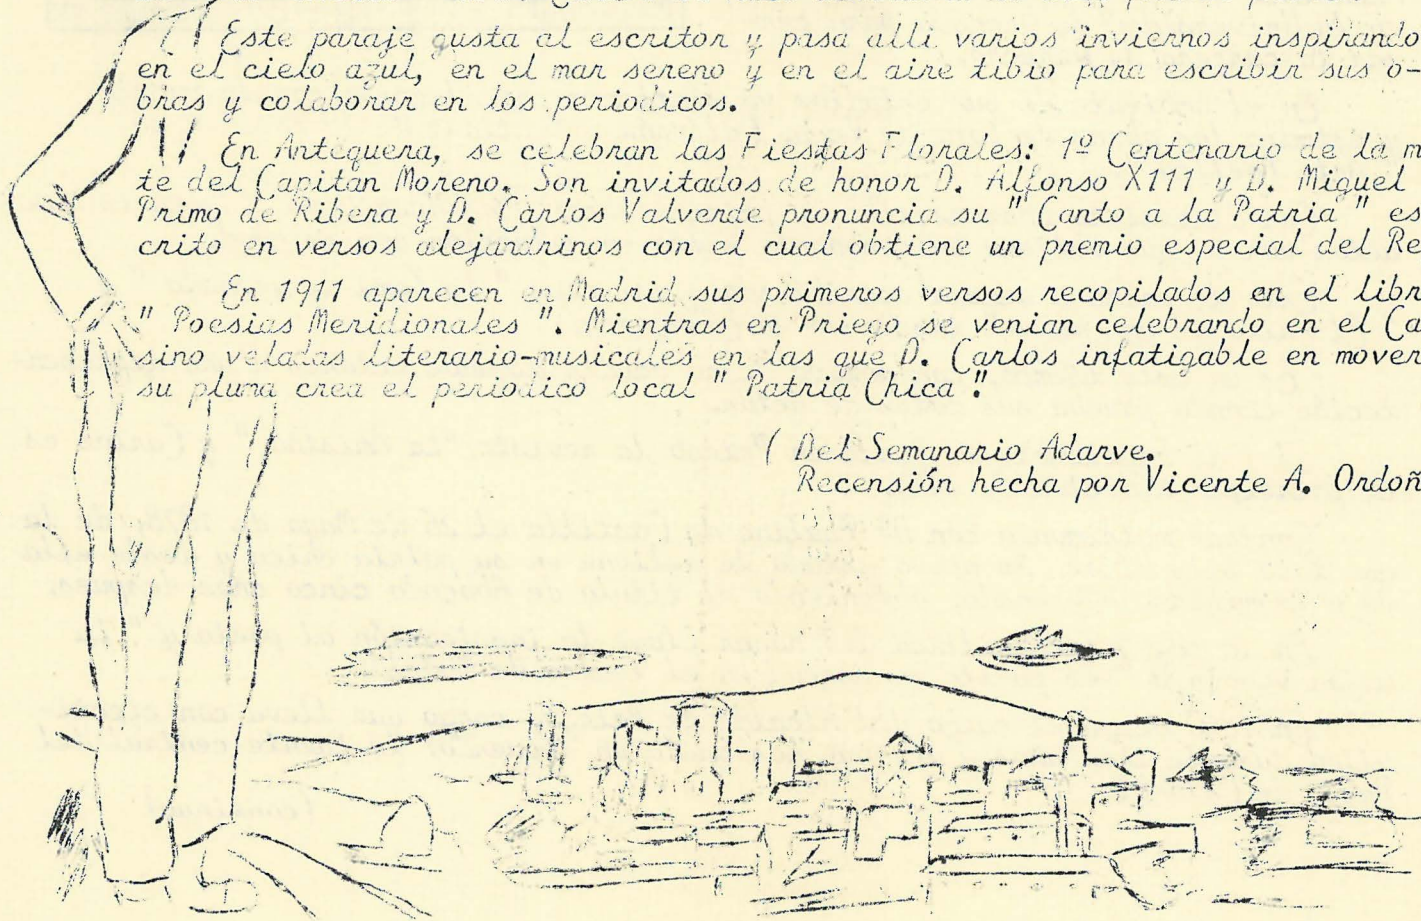 Este paraje gusta al escritor y pasa alli varios inviernos inspirando
en el cielo azul, en el mar sereno y en el aire tibio para escribir sus o-
bras y colaborar en los periodicos.
En Antequera, se celebran las Fiestas Florales: 1º Centenario de la m
te del Capitán Moreno. Son invitados de honor D. Alfonso X111 y D. Miguel
Primo de Ribera y D. Carlos Valverde pronuncia su " Canto a la Patria " es
crito en versos alejandrinos con el cual obtiene un premio especial del Re
En 1911 aparecen en Madrid sus primeros versos recopilados en el libr
" Poesias Meridionales ". Mientras en Priego se venian celebrando en el Ca
sino veladas literario-musicales en las que D. Carlos infatigable en mover
su pluma crea el periodico local " Patria Chica "
( Del Semanario Adarve.
Recensión hecha por Vicente A. Ordoñ